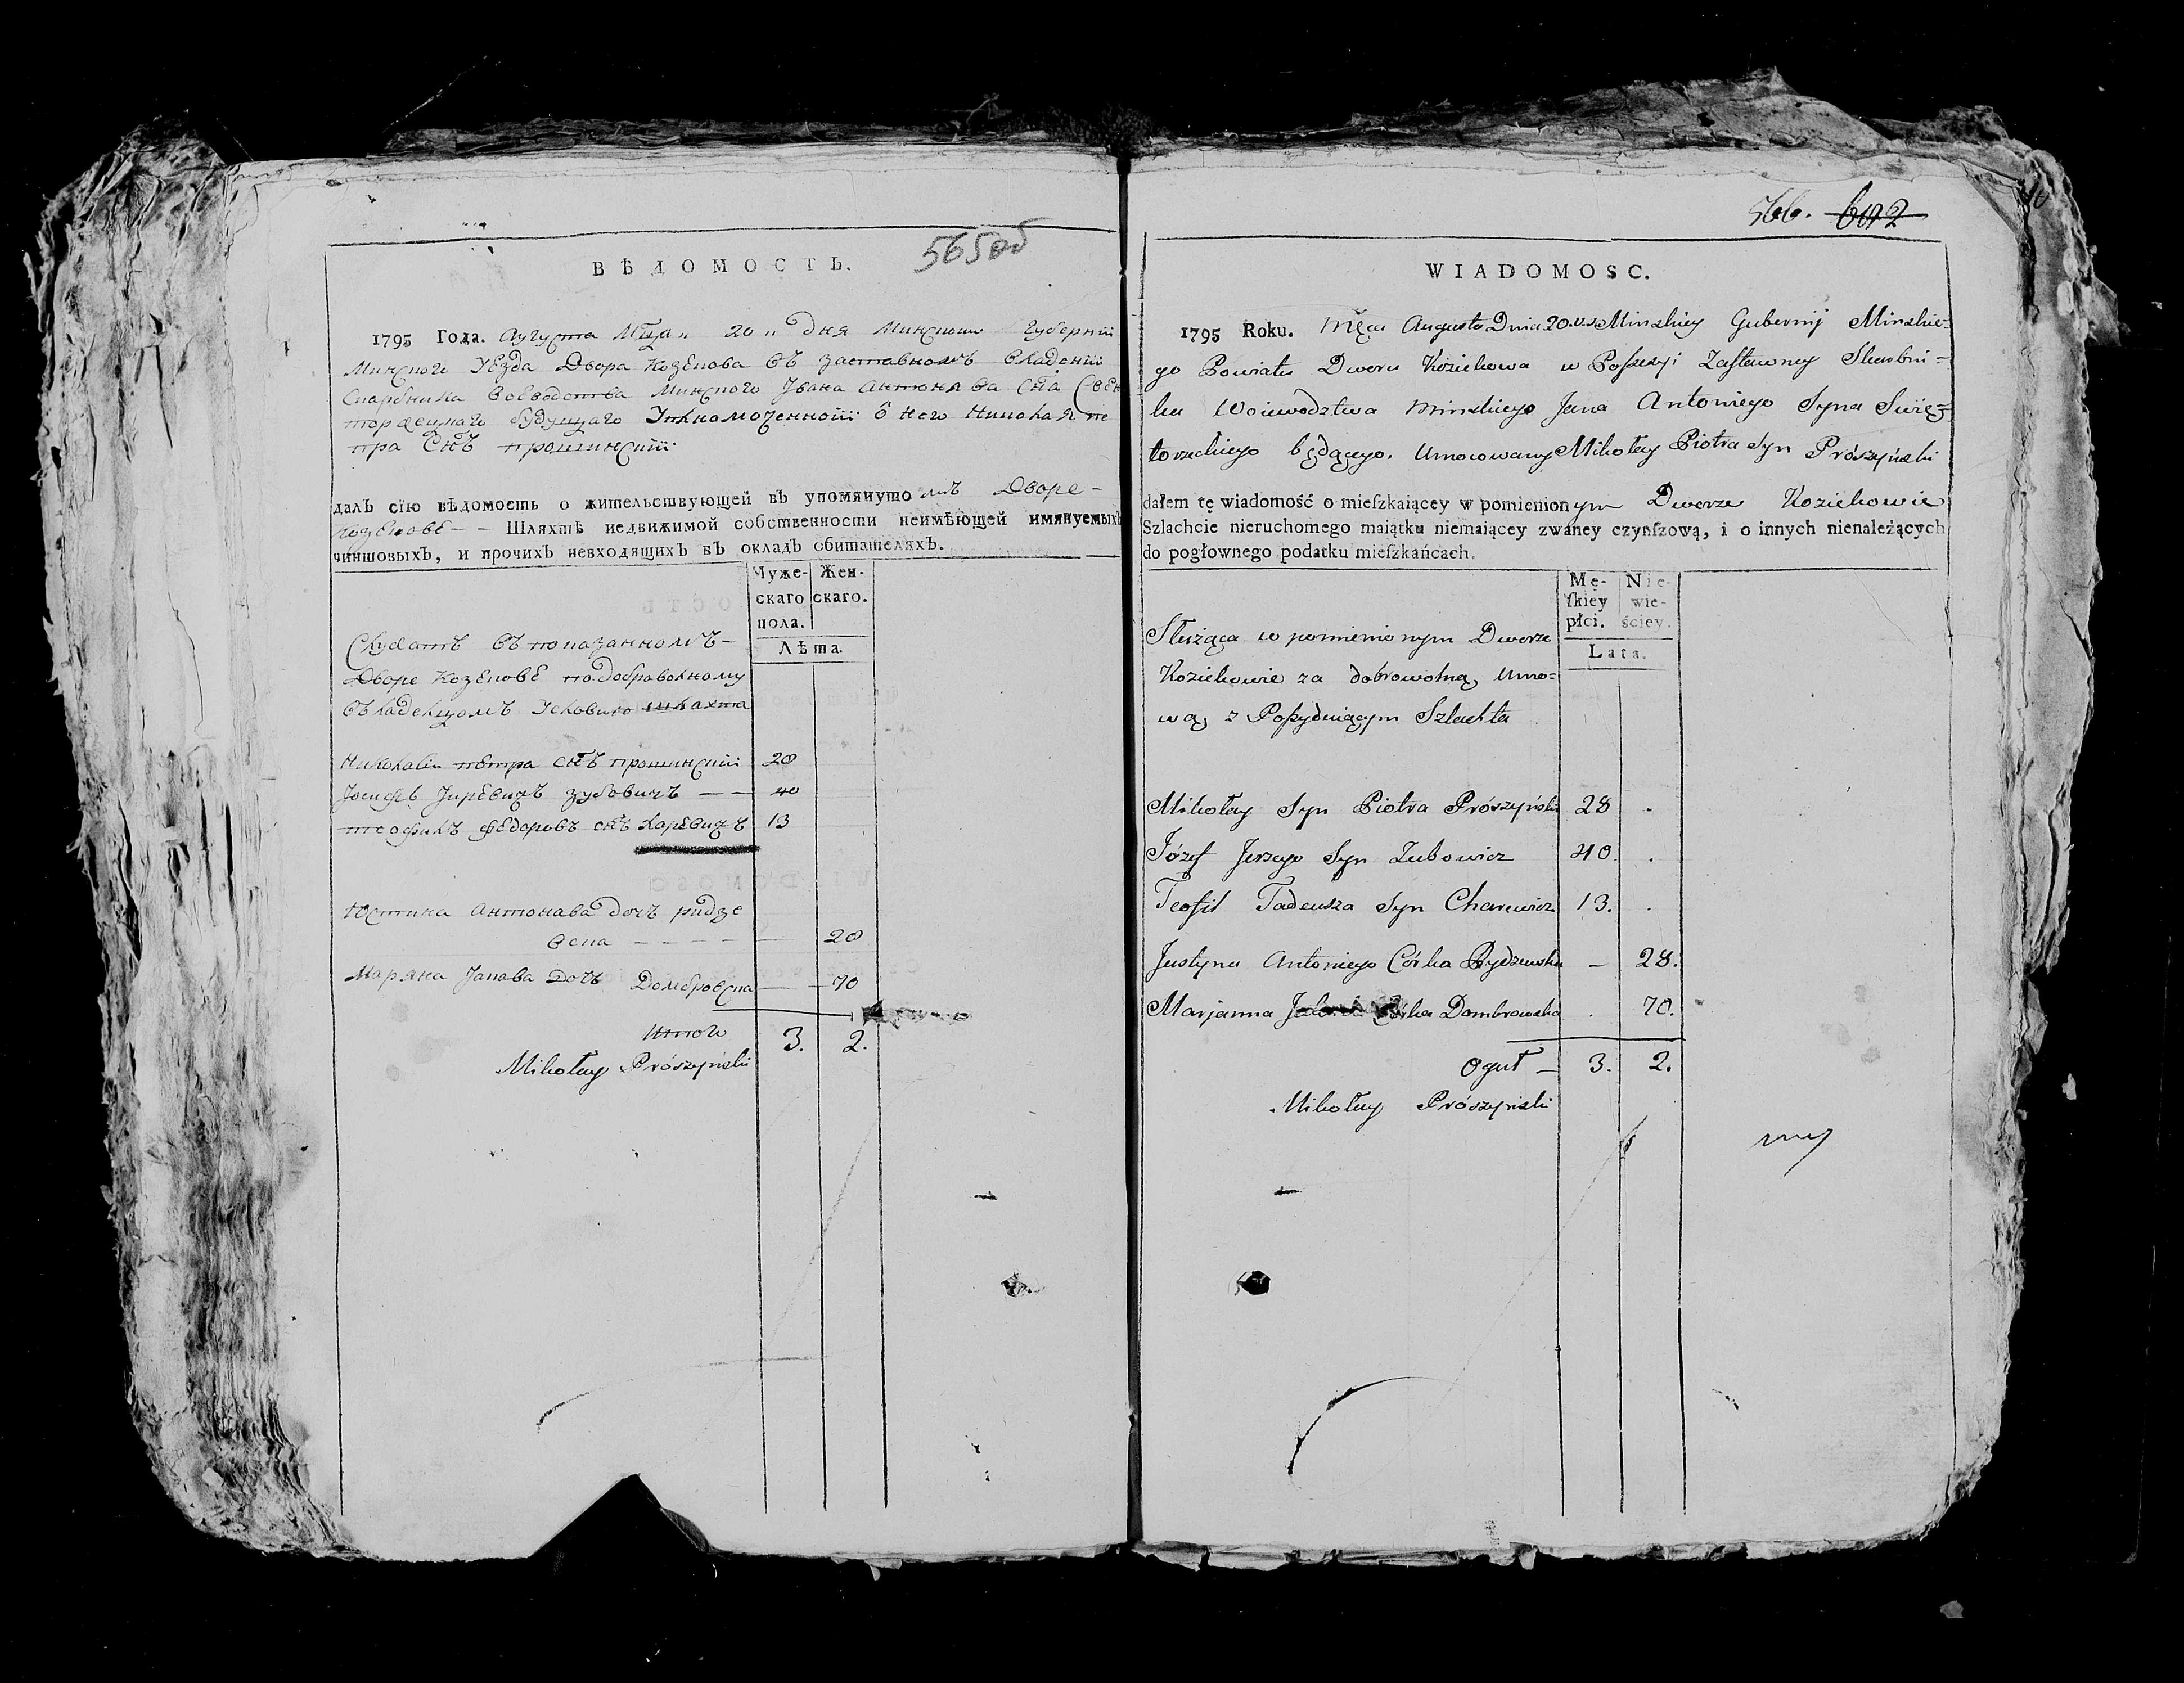 565об
ВѢДОМОСТЬ.
1795 Года. Аугуста Мца „ 20 „ дня Минской Губерніи
Минского Уѣзда Двора Козѣкова въ заставномъ владеніи
Скарбника воеводства Минского Ивана Антонява сна Свен
торжецкаго будущаго Уполномоченной о него Николай пе
тра Снъ прошинскій
далъ сїю вѣдомость о жительствующей въ упомянуто мъ Дворе -
Козѣковѣ - - Шляхтѣ недвижимой собственности неимѣющей имянуемыхъ
чиншовыхъ, и прочихъ невходящихъ въ окладъ обитателяхъ.
Муже- Жен-
скаго скаго.
пола.
Лѣта.
Служатъ въ показанномъ -
Дворе Козѣковѣ подобравольному
Съ владельцомъ Условию шляхта
Николай пѣтра снъ прошинскій 28
Іосифъ Юрѣвичъ зубовичъ — — 40
теофилъ федоровъ снъ харѣвичъ 13
Юстина антонава дочъ ридзе
вска — — — — 28
Маряна дочъ Домбровска — 70
Итого 3. 2.
Mikołay Prószyński
566. 602
WIADOMOSC.
1795 Roku. Mşca Augusta Dnia 20. v.s Minskiey Gubernij Minskie-
go Powiatu Dworu Koziekowa w Poſseſyi Zaſtawney Skarbni-
ka Woiewodztwa Minskiego Jana Antoniego Syna Swię-
torzeckiego będącego. Umocowany Mikołay Piotra Syn Prószyński
dałem tę wiadomość o mieſzkaiącey w pomienion ym Dworze Koziekowie
Szlachcie nieruchomego maiątku niemaiącey zwaney czynſzową, i o innych nienależących
do pogłownego podatku mieſzkańcach.
Mę- Nie-
ſkiey wie-
płci. ściey.
Lata.
Służąca w pomienionym Dworze
Koziekowie za dobrowolną Umo-
wą z Poſsyduiącym Szlachta
Mikołay Syn Piotra Prószyński 28 .
Józef Jerzego Syn Zubowicz 40. .
Teofil Tadeusza Syn Charewicz 13. .
Justyna Antoniego Córka Rydzewska — 28.
Marjanna Córka Dombrowska . 70.
Oguł — 3. 2.
Mikołay Prószyński